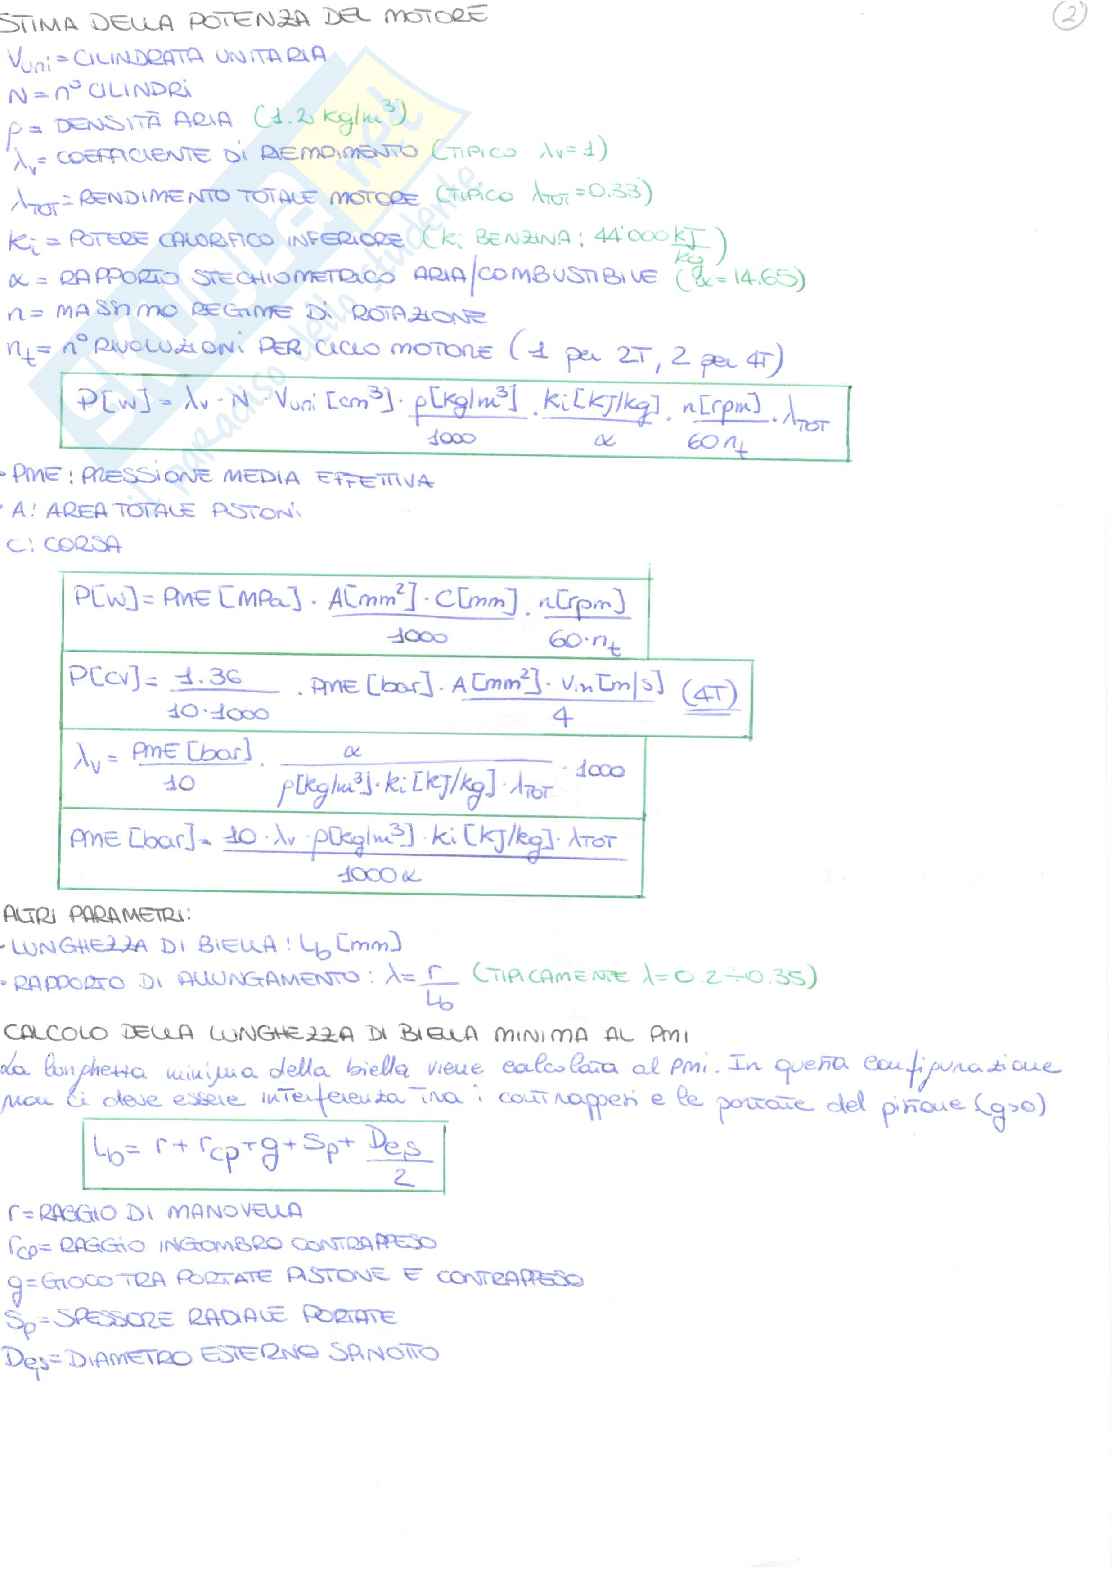 STIMA DELLA POTENZA DEL MOTORE
2
Vuni = CILINDRATA UNITARIA
N = n° CILINDRI
ρ = DENSITÀ ARIA (1.20 kg/m³)
λv = COEFFICIENTE DI RIEMPIMENTO (TIPICO λv = 1)
λTOT = RENDIMENTO TOTALE MOTORE (TIPICO λTOT = 0.33)
Ki = POTERE CALORIFICO INFERIORE (Ki BENZINA: 44'000 kJ/kg)
α = RAPPORTO STECHIOMETRICO ARIA/COMBUSTIBILE (α = 14.65)
n = MASSIMO REGIME DI ROTAZIONE
nt = n° RIVOLUZIONI PER CICLO MOTORE (1 per 2T, 2 per 4T)
P[W] = λv · N · Vuni [cm³] · ρ[kg/m³]/1000 · Ki[KJ/kg]/α · n[rpm]/60 nt · λTOT
· PME: PRESSIONE MEDIA EFFETTIVA
· A: AREA TOTALE PISTONI
C: CORSA
P[W] = PME [MPa] · A[mm²] · C[mm]/1000 · n[rpm]/60·nt
P[CV] = 1.36/10·1000 · PME [bar] · A[mm²] · Vm[m/s]/4 (4T)
λv = PME [bar]/10 · α/ρ[kg/m³]·Ki[KJ/kg]·λTOT · 1000
PME [bar] = 10 · λv · ρ[kg/m³] · Ki [KJ/kg] · λTOT/1000 α
ALTRI PARAMETRI:
· LUNGHEZZA DI BIELLA: Lb [mm]
· RAPPORTO DI ALLUNGAMENTO: λ = r/Lb (TIPICAMENTE λ = 0.2 ÷ 0.35)
CALCOLO DELLA LUNGHEZZA DI BIELLA MINIMA AL PMI
La lunghezza minima della biella viene calcolata al PMI. In questa configurazione
non ci deve essere interferenza tra i contrappesi e le portate del pistone (g>0)
Lb = r + rcp + g + Sp + Des/2
r = RAGGIO DI MANOVELLA
rcp = RAGGIO INGOMBRO CONTRAPPESO
g = GIOCO TRA PORTATE PISTONE E CONTRAPPESO
Sp = SPESSORE RADIALE PORTATE
Des = DIAMETRO ESTERNO SPINOTTO
SKUOLA.net
il paradiso dello studente